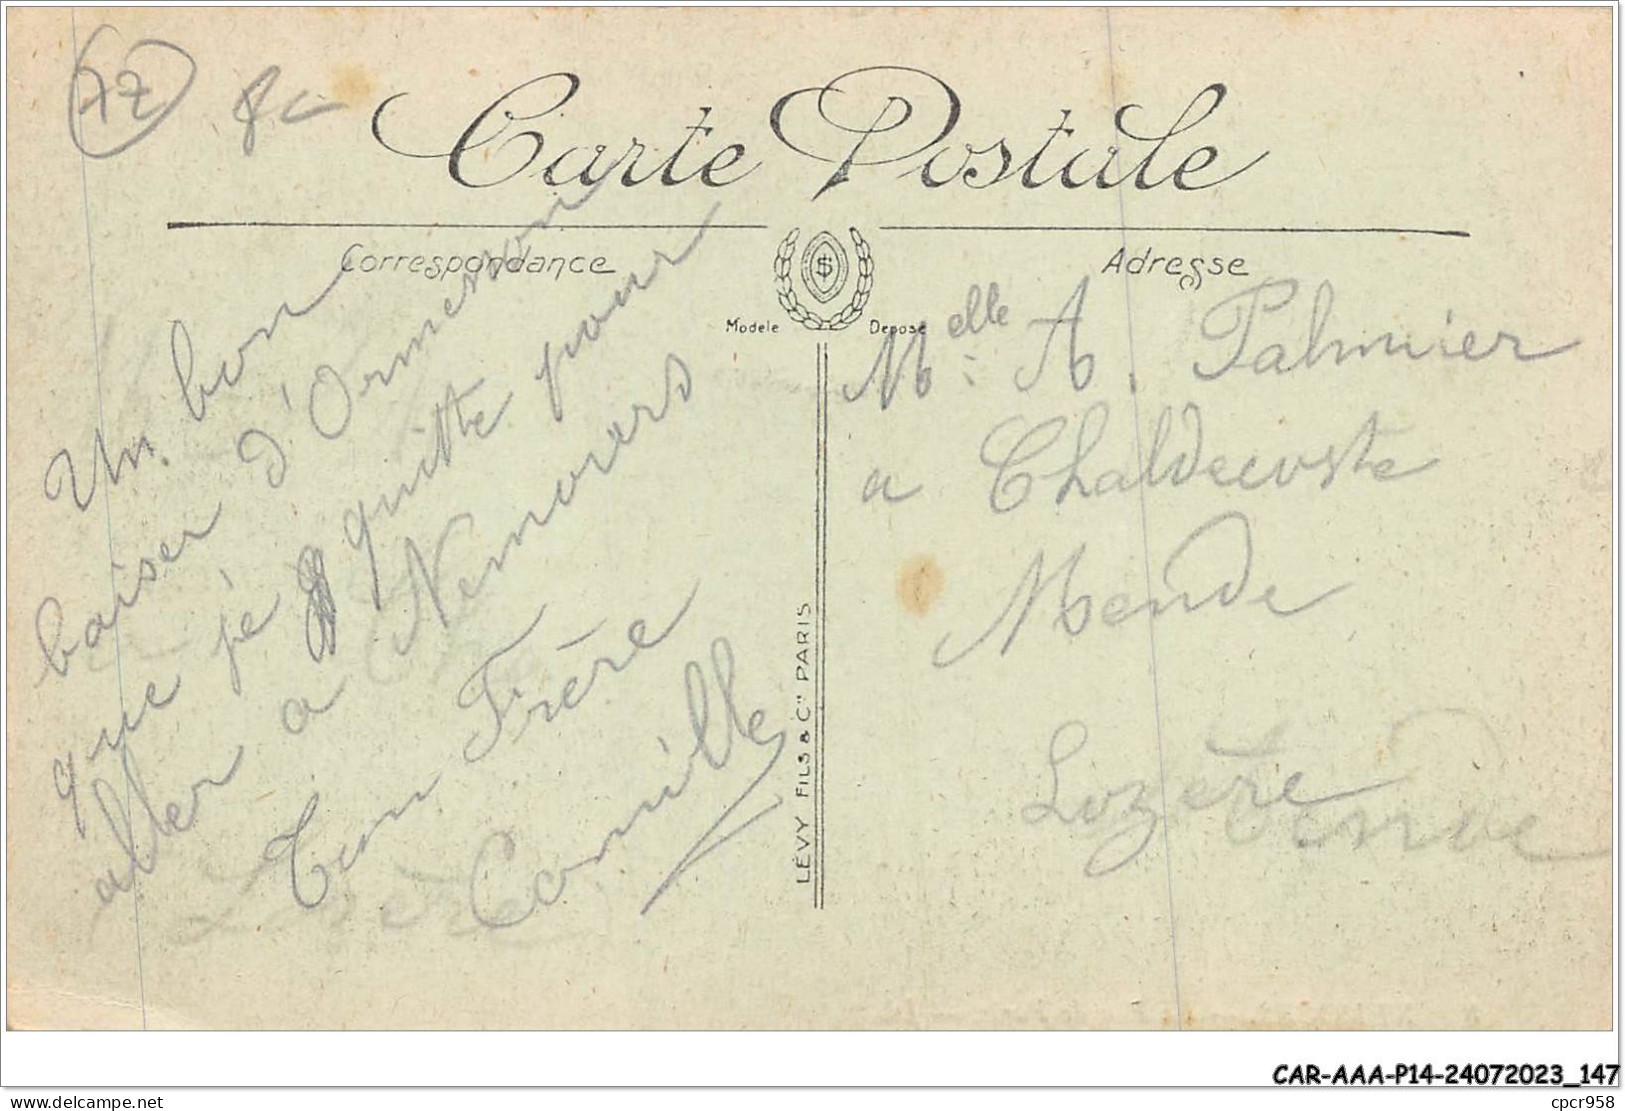 77
8c
Carte Postale
Correspondance
Adresse
Modele Deposé
Un bon
baiser d'Ormesson
que je quitte pour
aller a Nemours
Ton Frère
Camille
LÉVY FILS & Cie PARIS
Melle A. Palmier
a Chaldecoste
Mende
Lozère
CAR-AAA-P14-24072023_147
delcampe.net
cpcr958